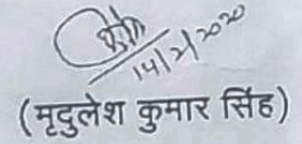 14/2/2020
(मृदुलेश कुमार सिंह)